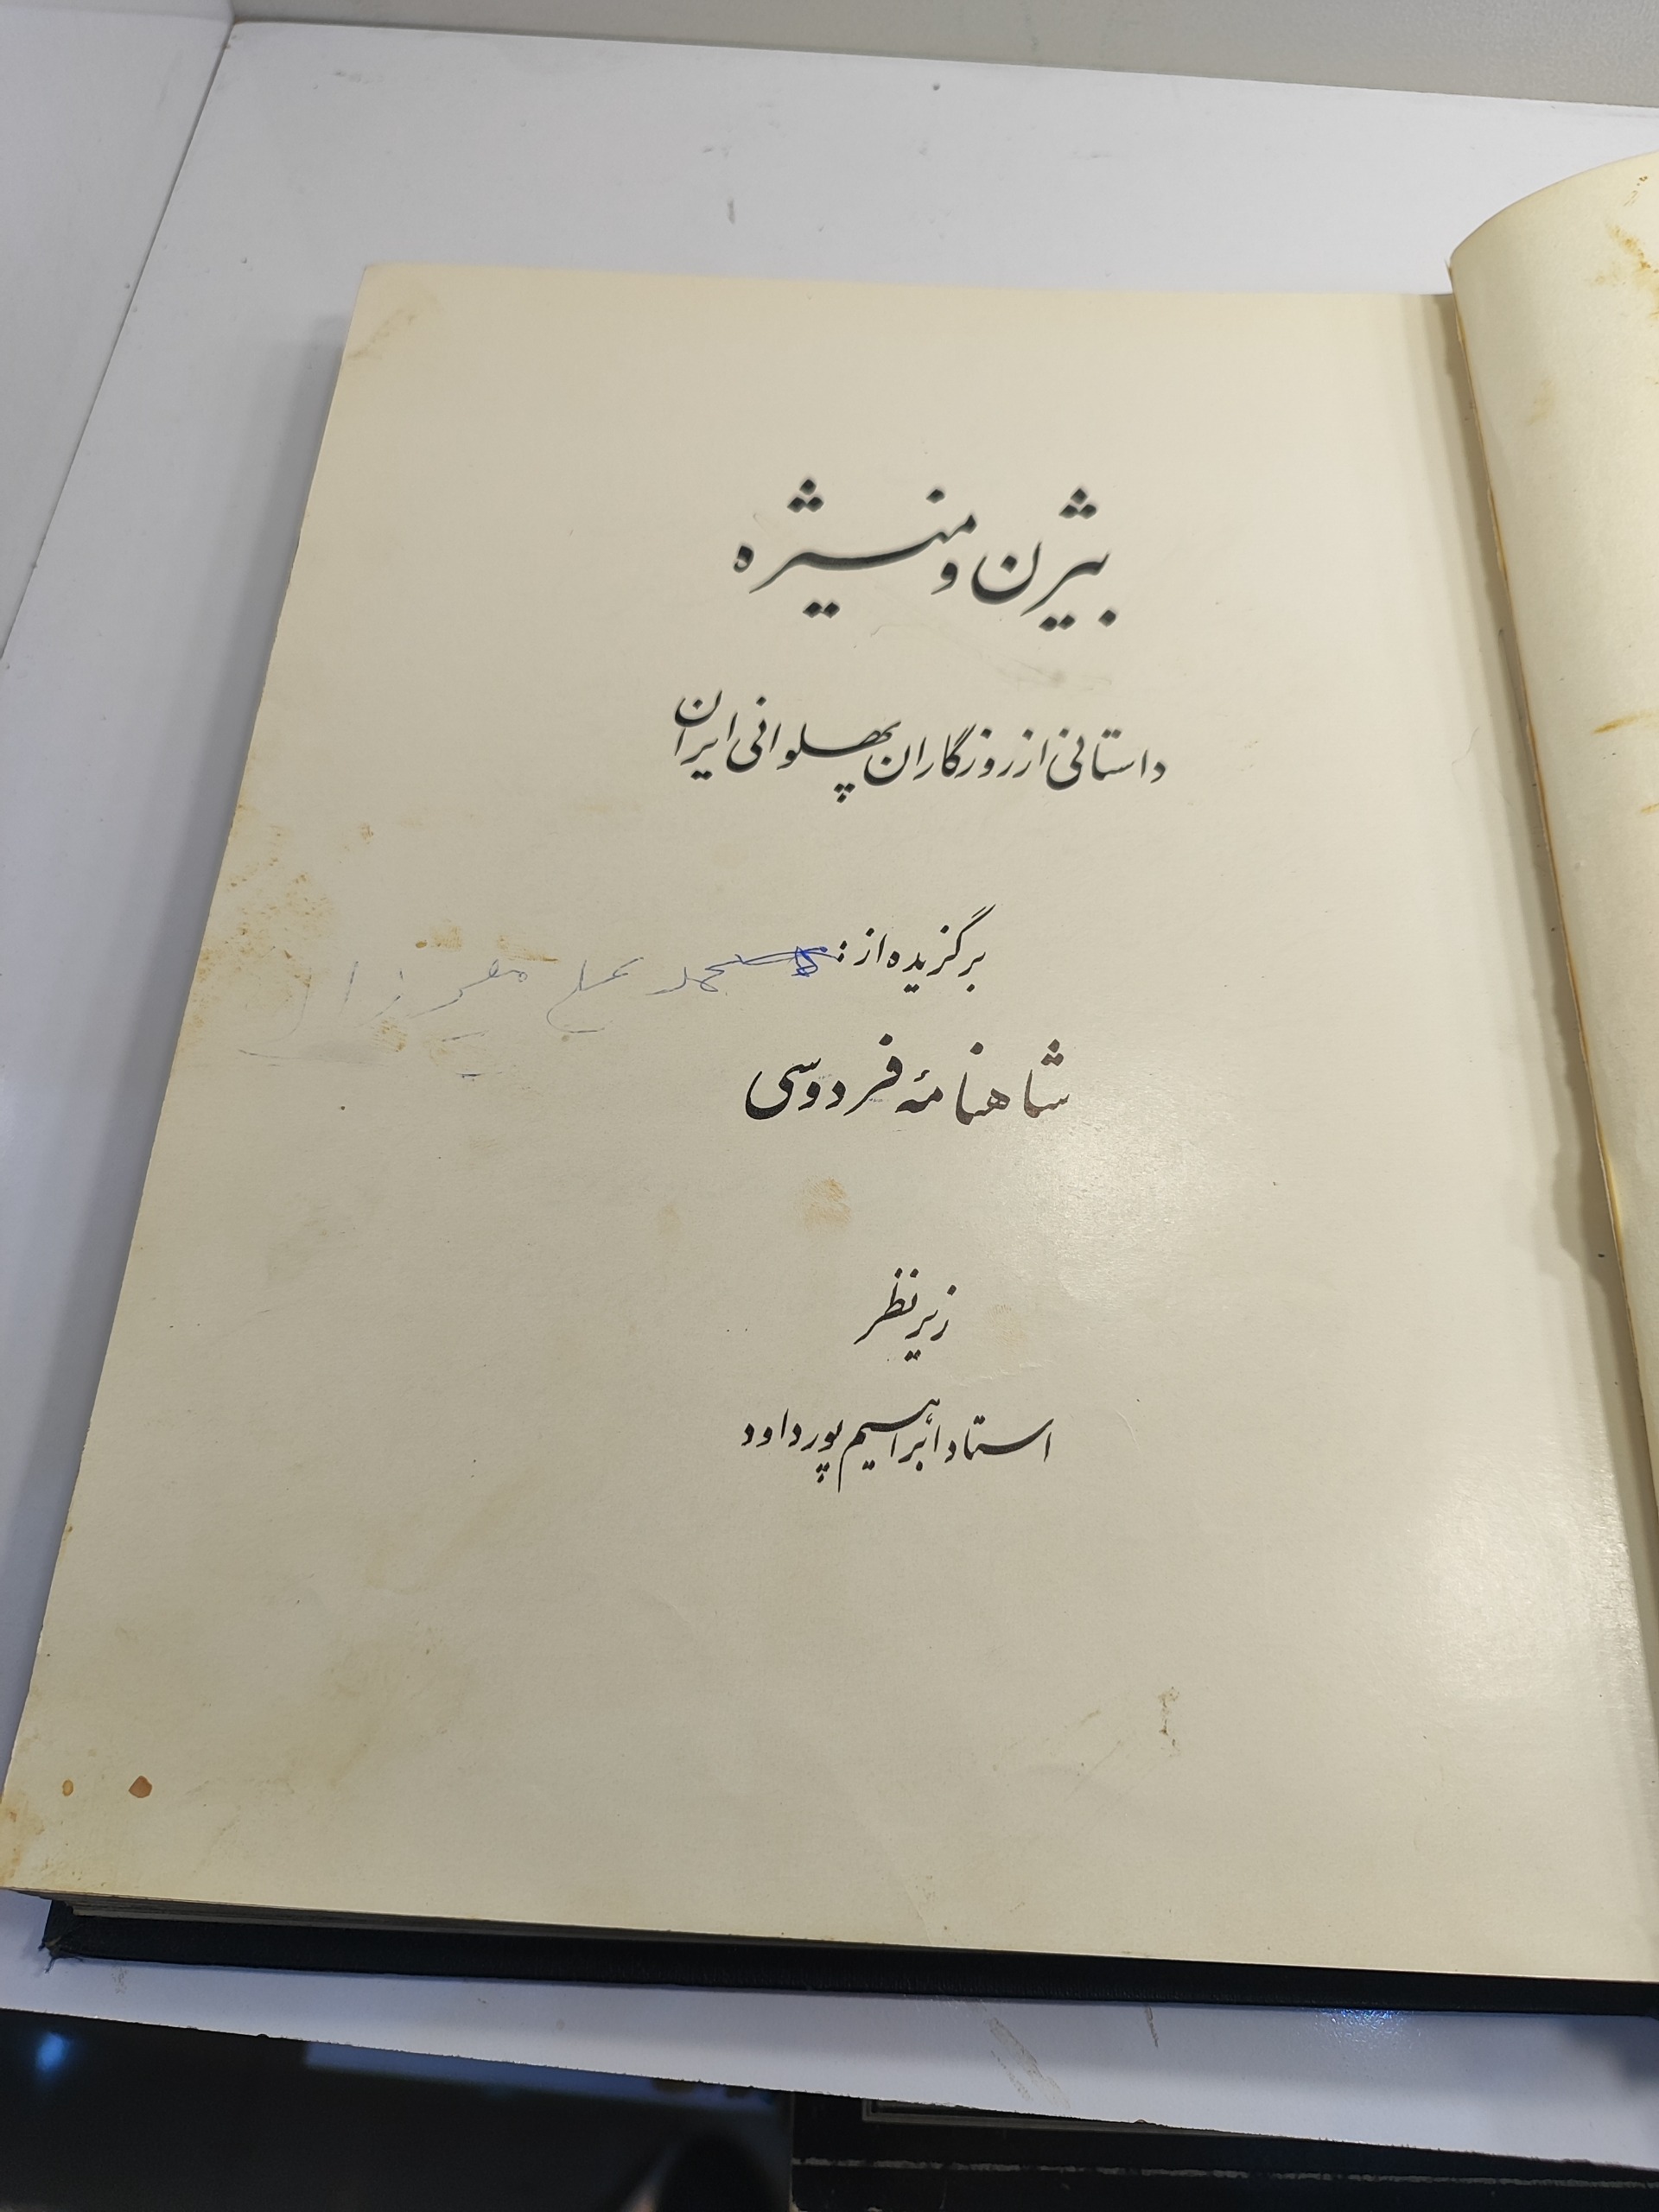 بیژن و منیژه
داستانی از روزگاران پهلوانی ایران
برگزیده از :
محمد علی
شاهنامهٔ فردوسی
زیر نظر
استاد ابراهیم پورداود